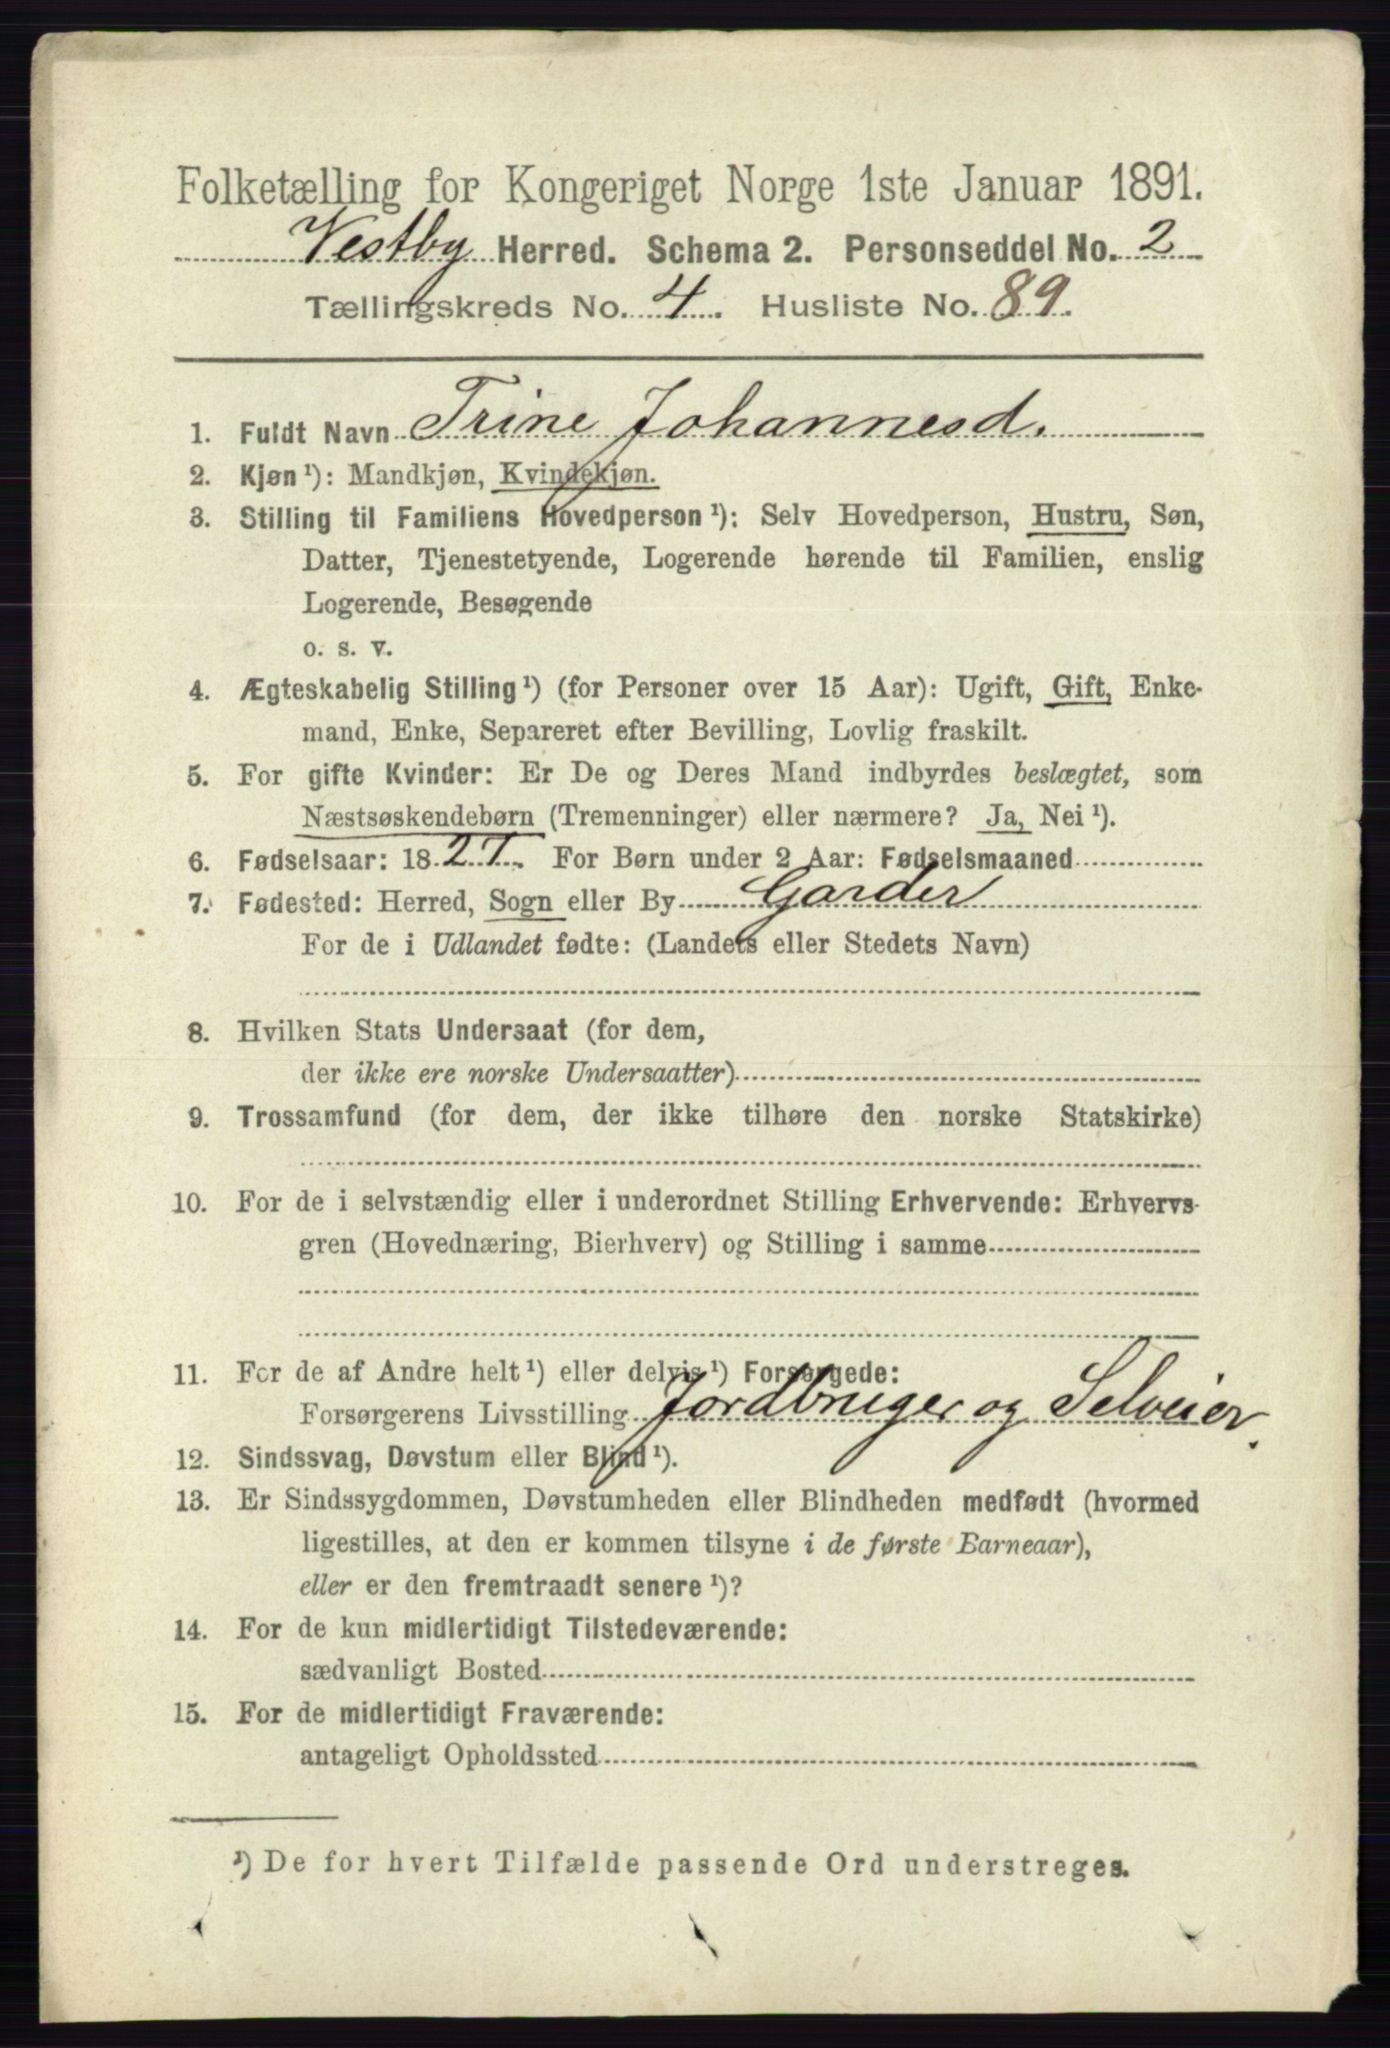 Folketælling for Kongeriget Norge 1ste Januar 1891.
Vestby Herred. Schema 2. Personseddel No. 2
Tællingskreds No. 4. Husliste No. 89.
1. Fuldt Navn Trine Johannesd.
2. Kjøn¹): Mandkjøn, Kvindekjøn.
3. Stilling til Familiens Hovedperson¹): Selv Hovedperson, Hustru, Søn,
Datter, Tjenestetyende, Logerende hørende til Familien, enslig
Logerende, Besøgende
o. s. v.
4. Ægteskabelig Stilling¹) (for Personer over 15 Aar): Ugift, Gift, Enke-
mand, Enke, Separeret efter Bevilling, Lovlig fraskilt.
5. For gifte Kvinder: Er De og Deres Mand indbyrdes beslægtet, som
Næstsøskendebørn (Tremenninger) eller nærmere? Ja, Nei¹).
6. Fødselsaar: 1827. For Børn under 2 Aar: Fødselsmaaned
7. Fødested: Herred, Sogn eller By Garder
For de i Udlandet fødte: (Landets eller Stedets Navn)
8. Hvilken Stats Undersaat (for dem,
der ikke ere norske Undersaatter)
9. Trossamfund (for dem, der ikke tilhøre den norske Statskirke)
10. For de i selvstændig eller i underordnet Stilling Erhvervende: Erhvervs-
gren (Hovednæring, Bierhverv) og Stilling i samme
11. For de af Andre helt¹) eller delvis¹) Forsørgede:
Forsørgerens Livsstilling Jordbruger og Selveier.
12. Sindssvag, Døvstum eller Blind¹).
13. Er Sindssygdommen, Døvstumheden eller Blindheden medfødt (hvormed
ligestilles, at den er kommen tilsyne i de første Barneaar),
eller er den fremtraadt senere¹)?
14. For de kun midlertidigt Tilstedeværende:
sædvanligt Bosted
15. For de midlertidigt Fraværende:
antageligt Opholdssted
¹) De for hvert Tilfælde passende Ord understreges.